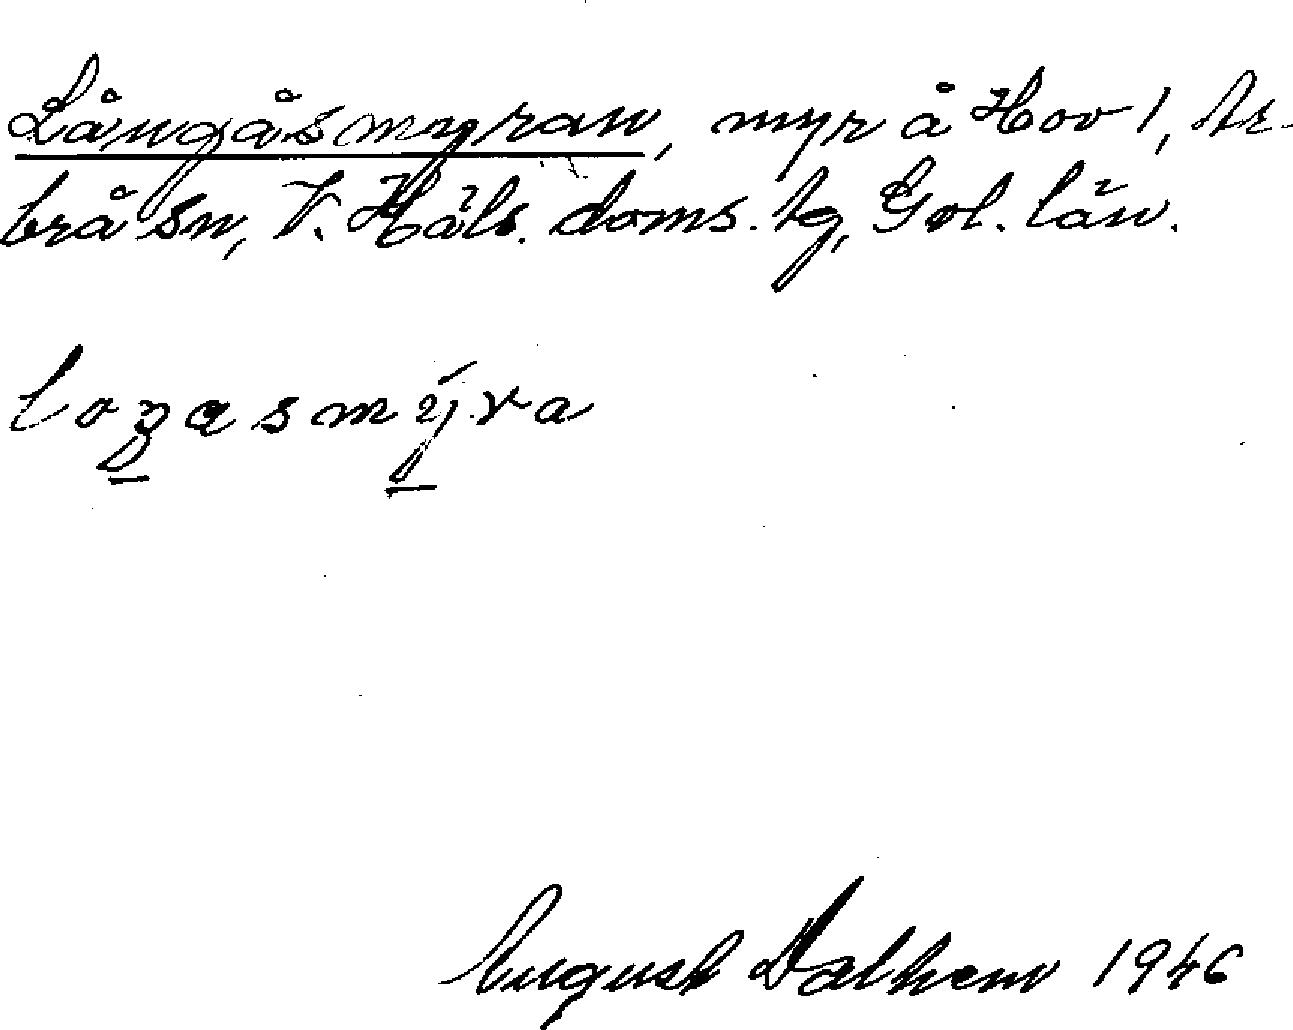 Långåsmyran, myr å Hov 1, Ar-
brå sn, V. Häls. doms. tg, Gvl. län.
loŋasmýra
August Dalhem 1946